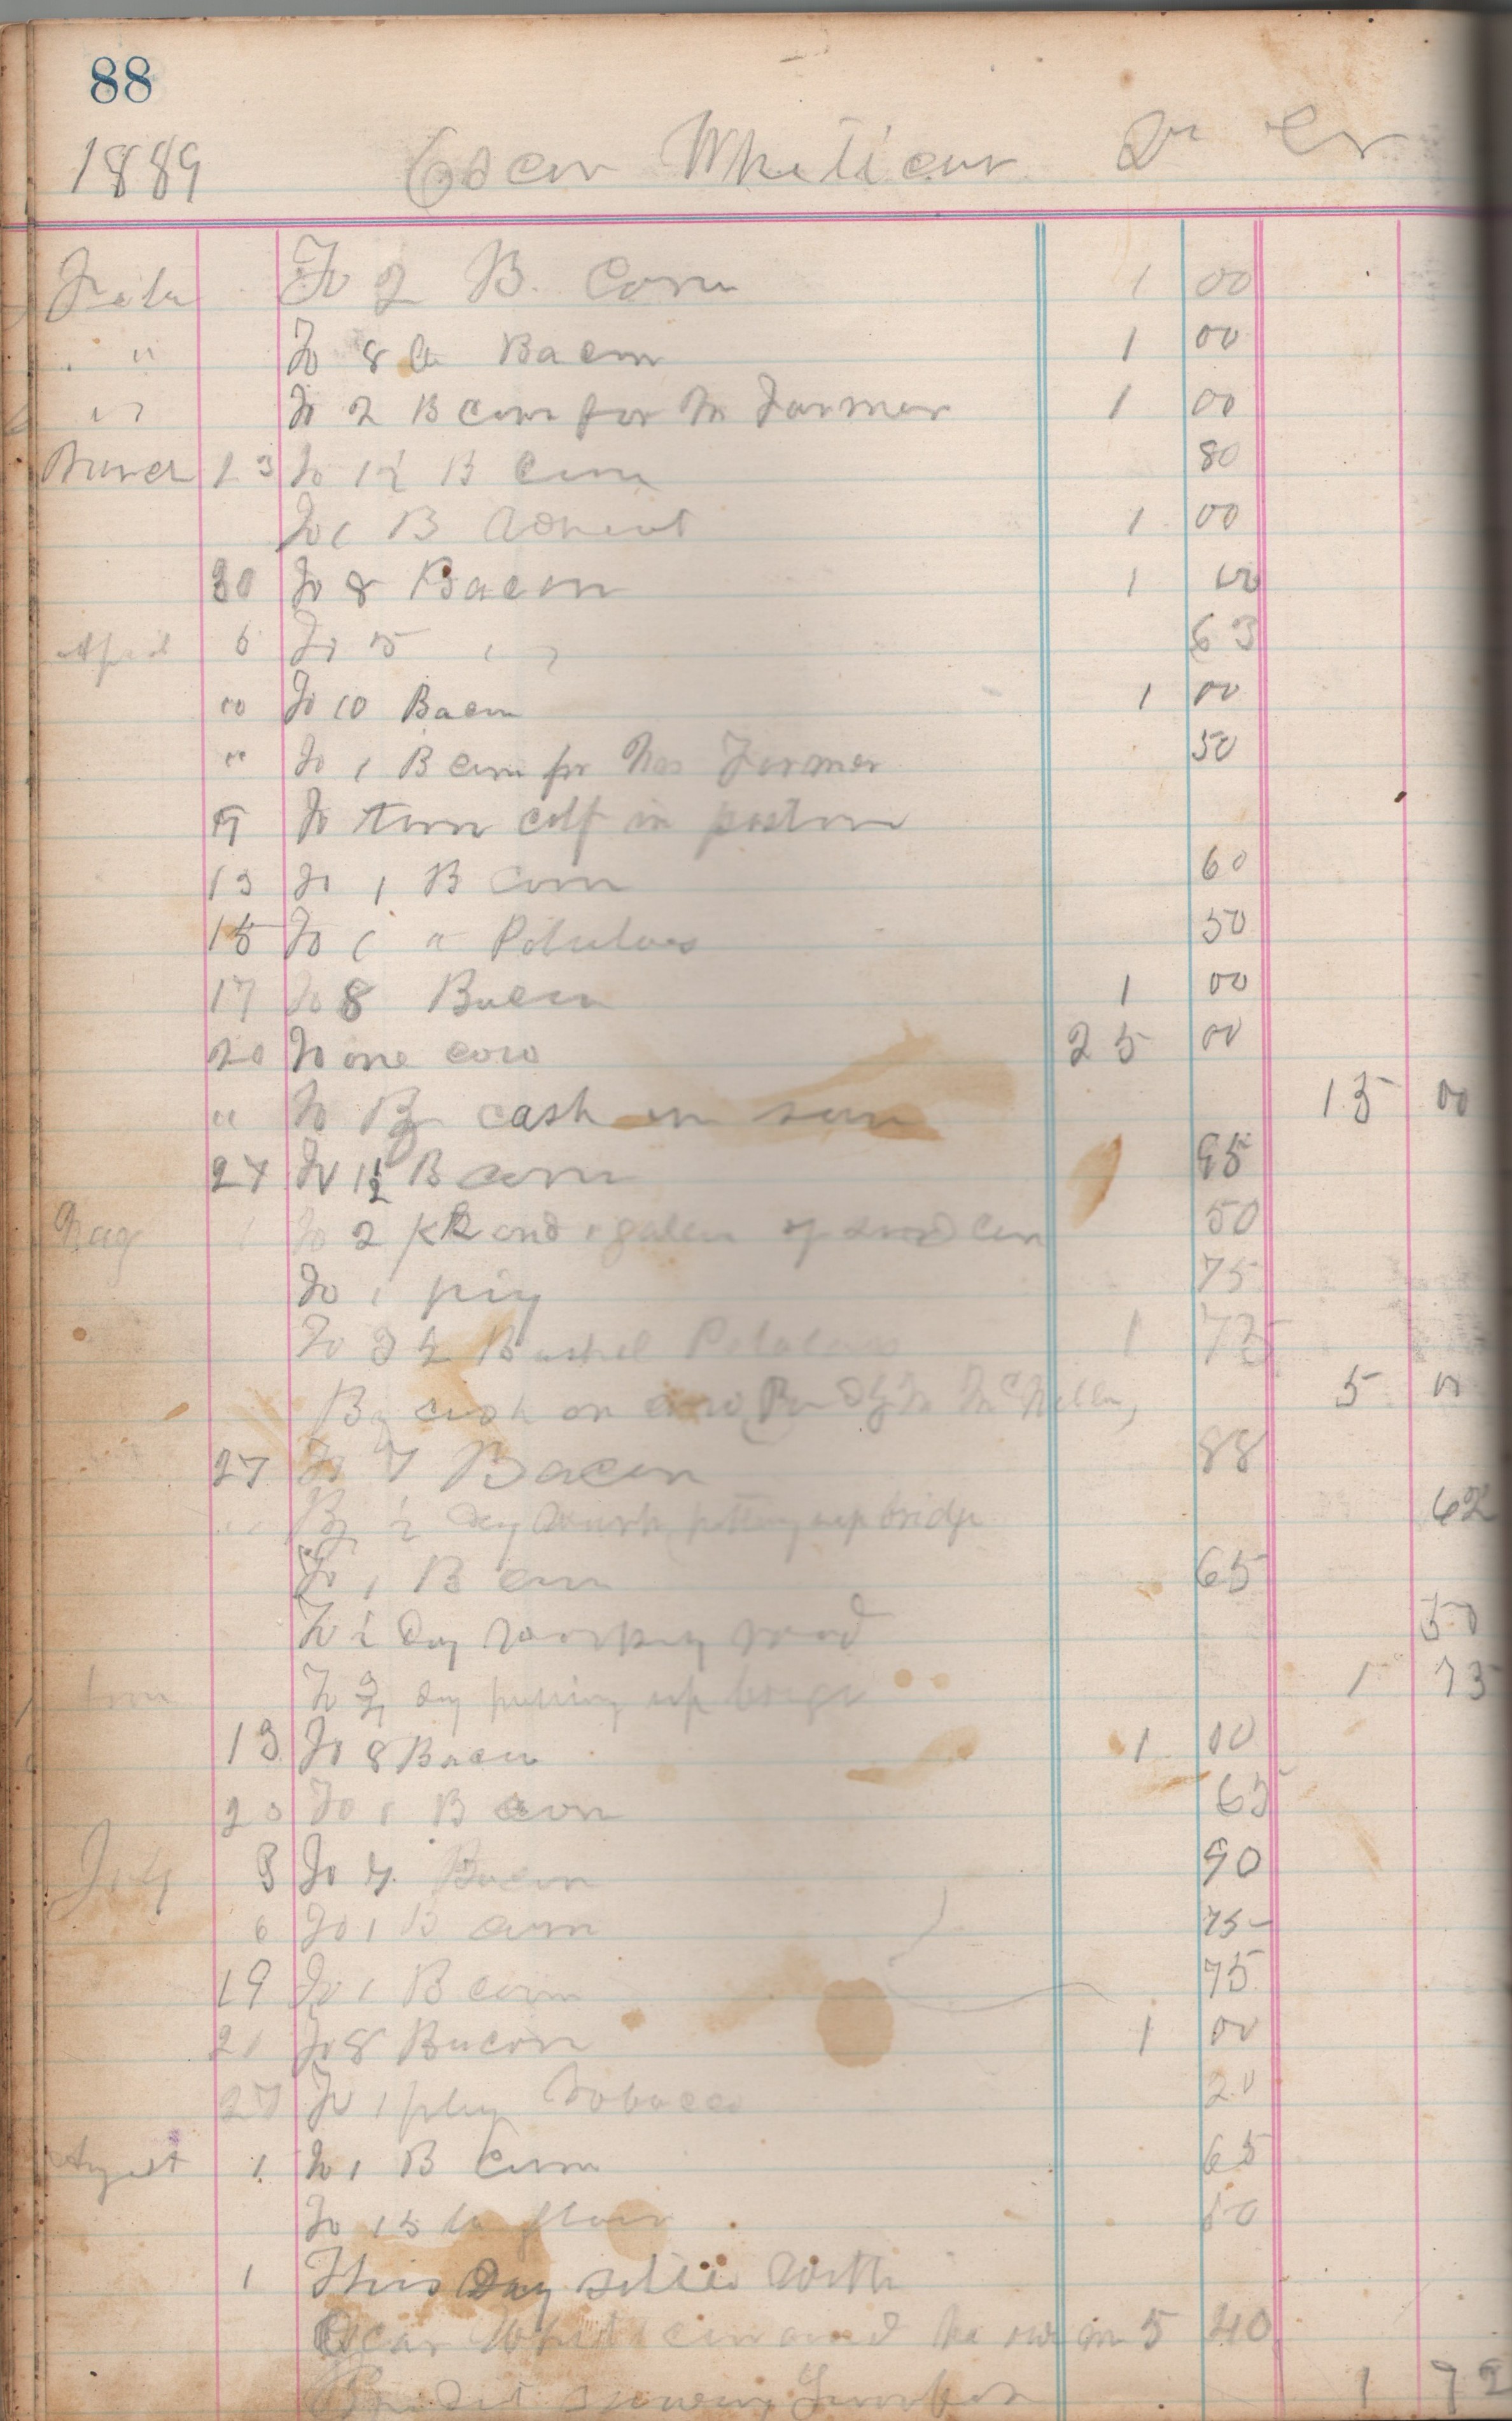 88
1889 Oscar Whiticur Dr Cr
To 2 B. Corn 1 00
" To 8 lb Bacon 1 00
" To 2 B corn for Farmer 1 00
13 To 1 1/2 B Corn 80
To 1 B 1 00
30 To 8 Bacon 1 00
April 6 To 5 " 63
" To 10 Bacon 1 00
" To 1 B corn for Farmer 50
9 To turn calf in
13 To 1 B Corn 60
15 To 1 " Potatoes 50
17 To 8 Bacon 1 00
20 To one cow 25 00
" To By cash on 15 00
27 To 1 1/2 B corn 95
May 1 To 2 and 1 of 50
To 1 pig 75
To Bushel Potatoes 1 75
By cash on cow 5 00
27 To 7 Bacon 88
" By 1/2 Day work putting up bridge 62
To 1 B corn 65
To 1/2 Day working road 50
To day putting up 1 75
13 To 8 Bacon 1 00
20 To 1 B corn 65
July 3 To 7 Bacon 90
6 To 1 B corn 75
19 To 1 B corn 75
21 To 8 Bacon 1 00
27 To 1 plug Tobacco 20
August 1 To 1 B Corn 65
To 15 lb flour 50
1 This Day With
Oscar and he me 5 40
1 72